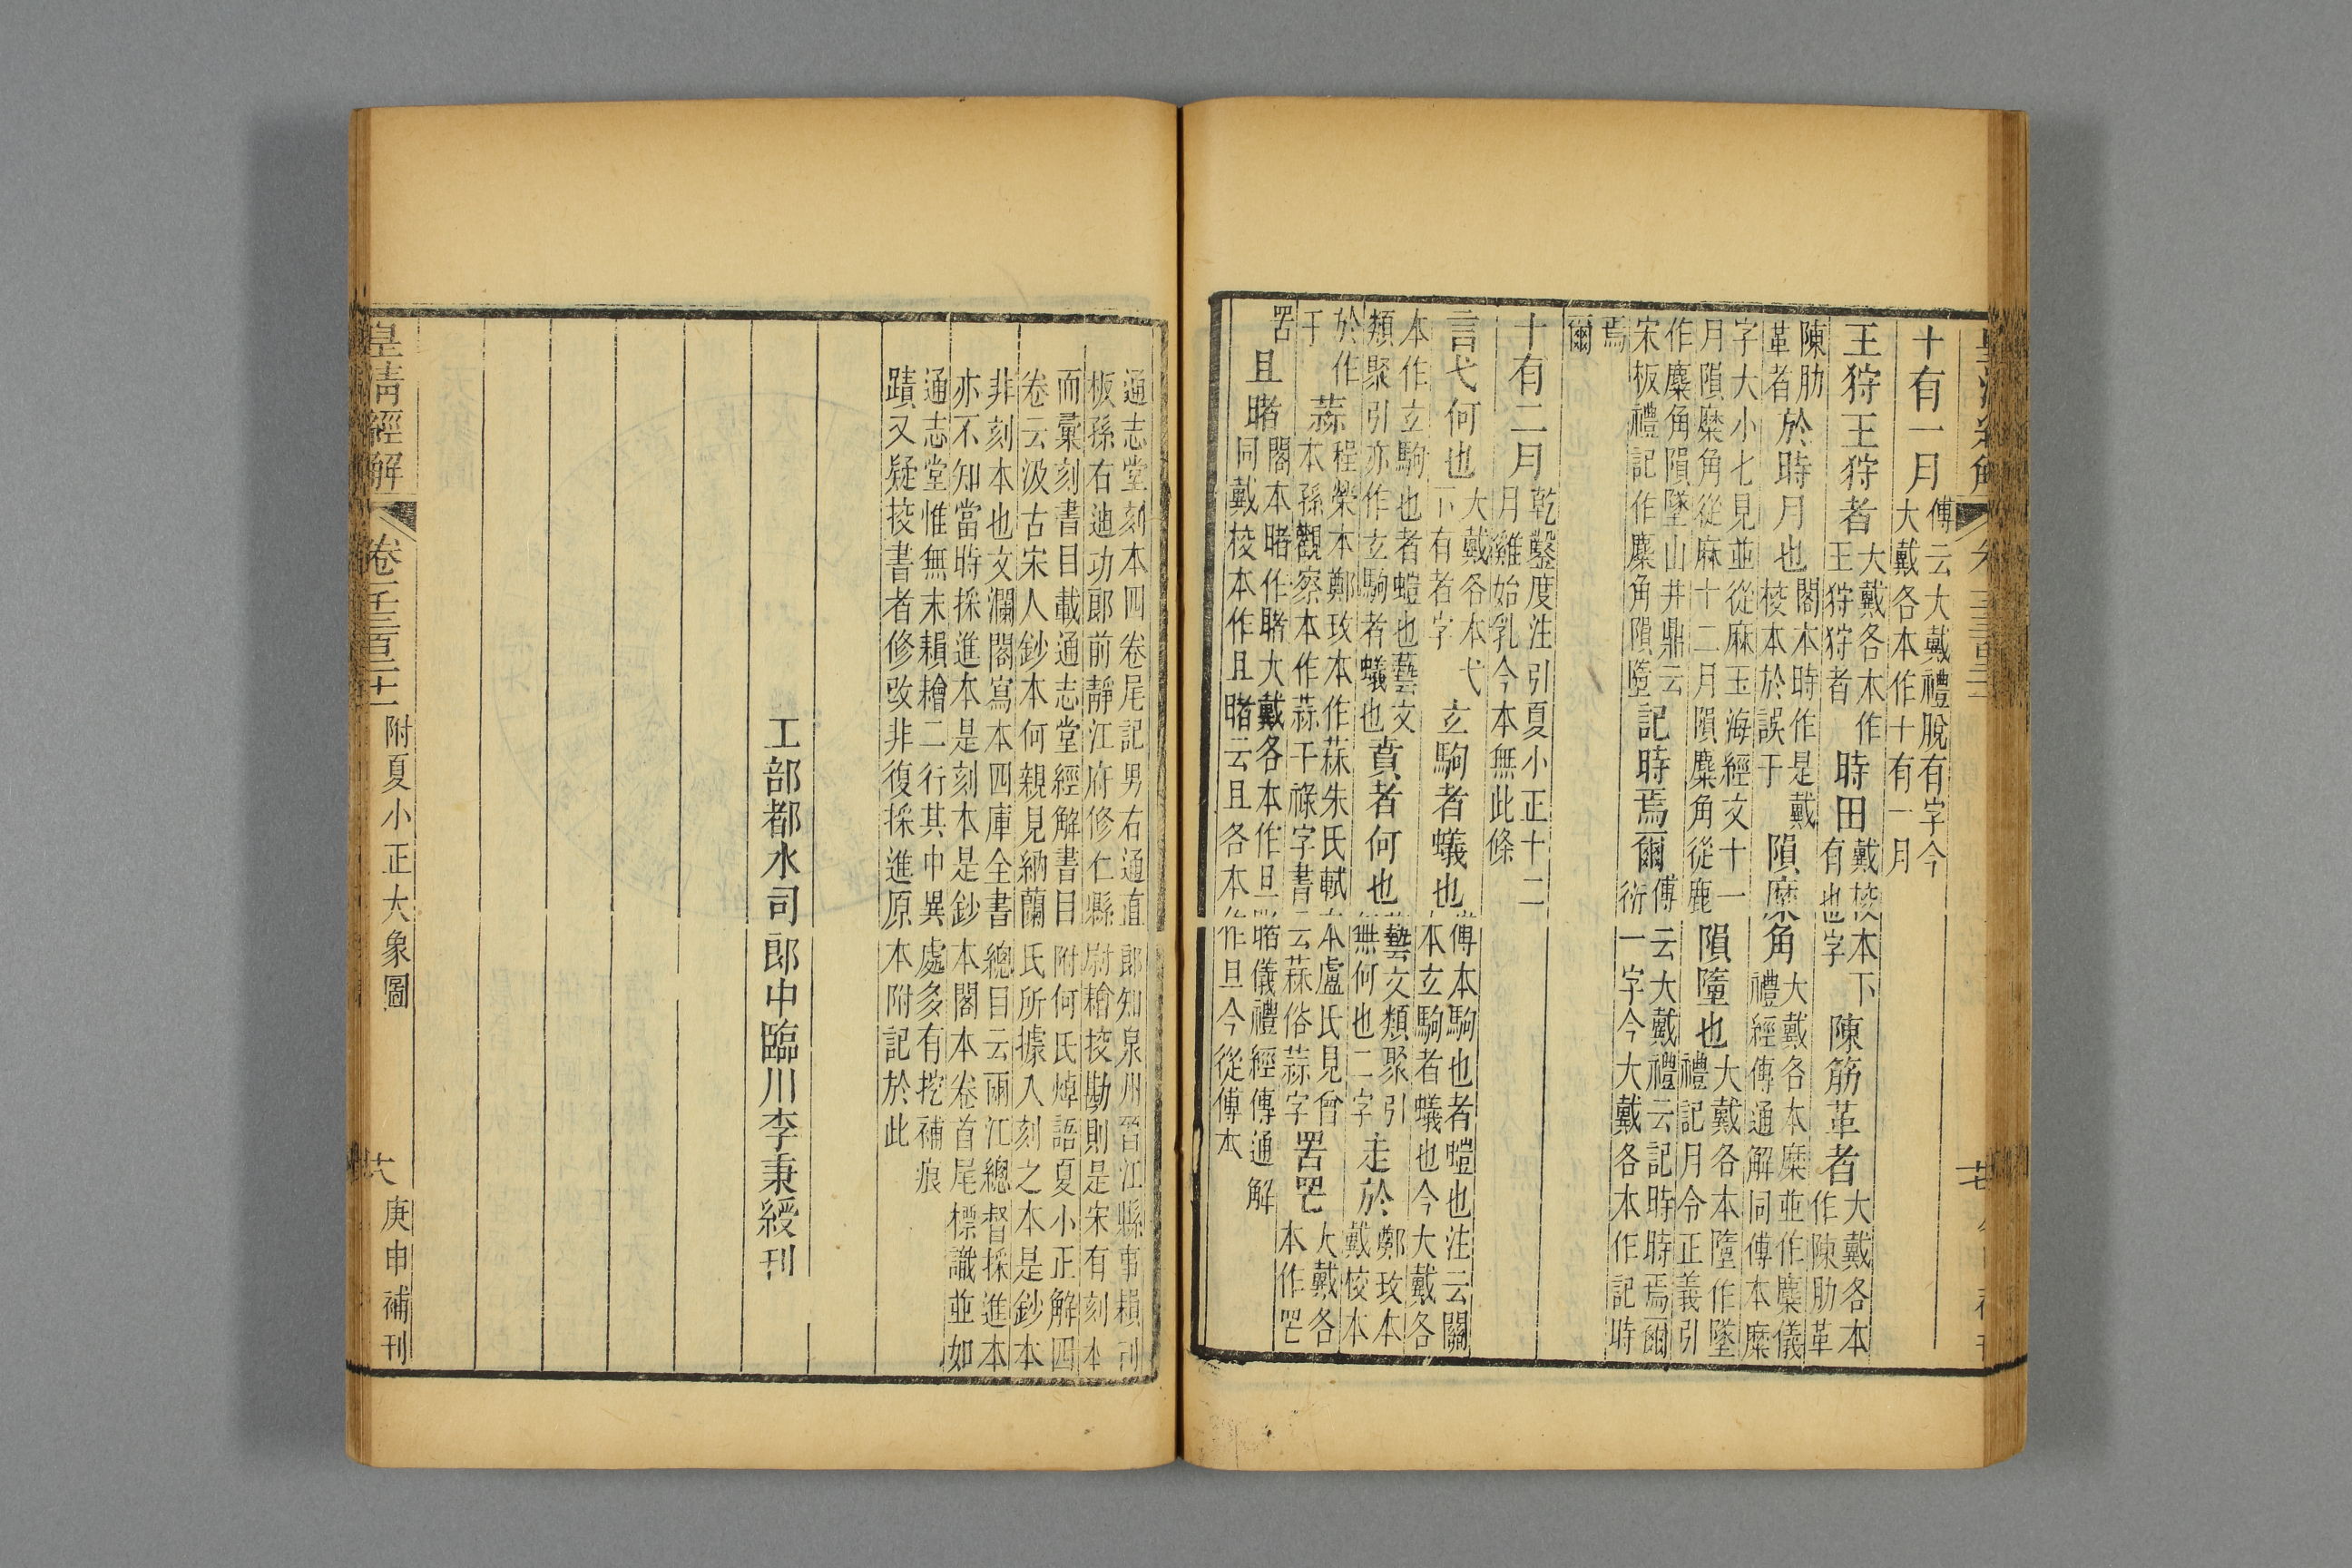 十有一月傅云大戴禮脫有字今大戴各本作十有一月
王狩王狩者大戴各本作王狩狩者時田戴挍本下有也字陳筋革者大戴各本作陳肋革
陳肋革者於時月也閣本時作是戴挍本於誤于隕麋角大戴各本麋並作麋儀禮經傳通解同傅本麋
字大小七見並從麻玉海經文十一月隕麋角從麻十二月隕麋角從鹿隕墮也大戴各本墮作墜禮記月令正義引
作麋角隕墜山井鼎云宋板禮記作麋角隕墮記時焉爾傅云大戴禮云記時時焉爾衍一字今大戴各本作記時
焉爾
十有二月乾鑿度注引夏小正十二月雞始乳今本無此條
言弋何也大戴各本弋下有者字玄駒者蟻也傅本駒也者螘也注云關本玄駒者蟻也今大戴各
本作玄駒也者螘也藝文類聚引亦作玄駒者蟻也賁者何也藝文類聚引無何也二字走於鄭攷本戴挍本
於作于蒜程榮本鄭攷本作菻朱氏軾本盧氏見曾本孫觀察本作蒜干祿字書云蒜俗蒜字大戴各本作
罟且睹閣本睹作賭大戴各本作旦睹儀禮經傳通解同戴挍本作且睹云且各本作旦今從傅本
皇清經解
通志堂刻本四卷尾記男右通直郎知泉州晉江縣事賴刊
板孫右迪功郎前靜江府修仁縣尉檜挍勘則是宋有刻本
而彙刻書目載通志堂經解書目附何氏焯語夏小正解四
卷云汲古宋人鈔本何親見納蘭氏所據入刻之本是鈔本
非刻本也文瀾閣寫本四庫全書總目云兩江總督採進本
亦不知當時採進本是刻本是鈔本閣本卷首尾標識並如
通志堂惟無末賴檜二行其中異處多有挖補痕
蹟又疑挍書者修改非復採進原本附記於此
工部都水司郎中臨川李秉綬刊
皇清經解 卷一千三百二十一 附夏小正大象圖 庚申補刊